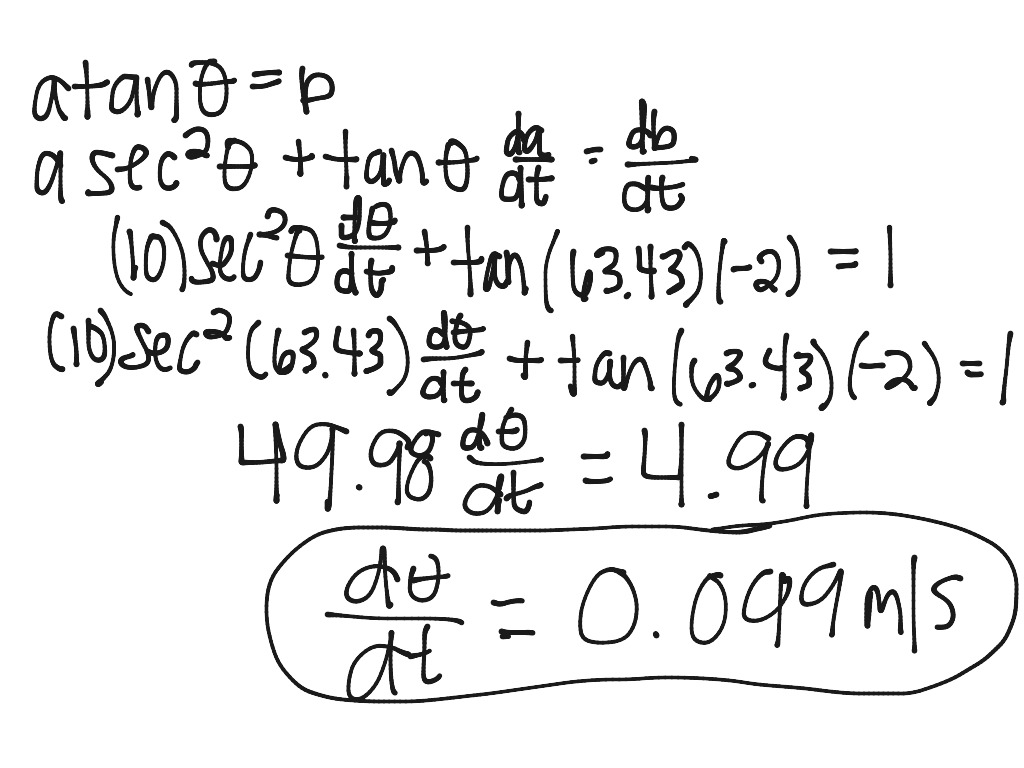 a tan θ = b
a sec²θ + tan θ da/dt = db/dt
(10) sec²θ dθ/dt + tan (63.43)(-2) = 1
(10) sec² (63.43) dθ/dt + tan (63.43)(-2) = 1
49.98 dθ/dt = 4.99
dθ/dt = 0.099 m/s